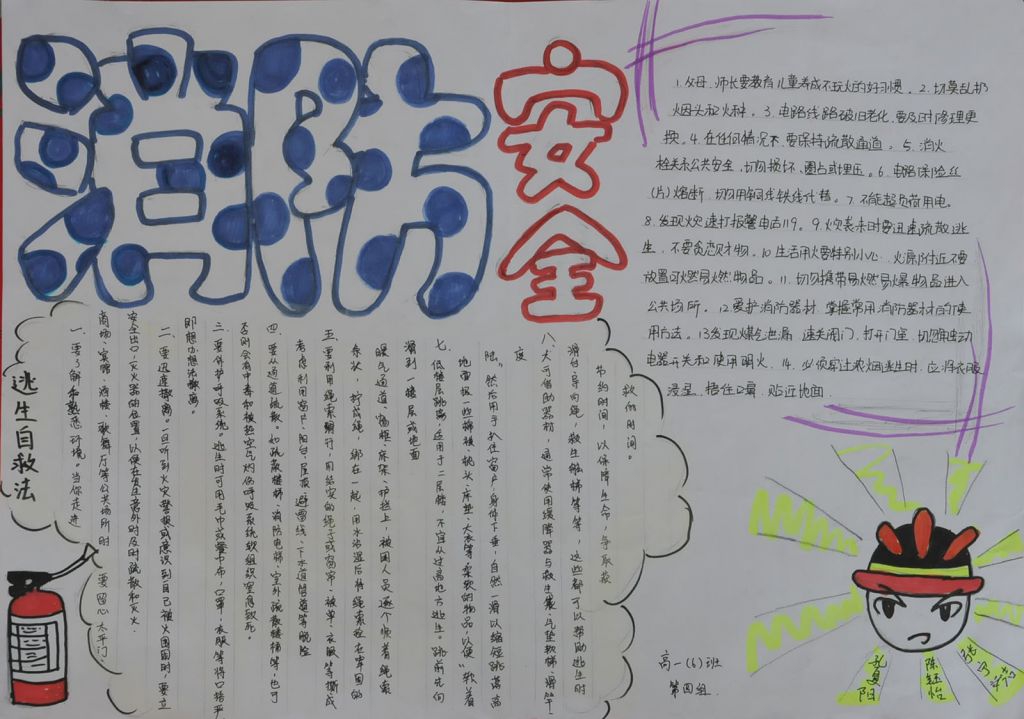 消防
安全
1.父母、师长要教育儿童养成不玩火的好习惯。2.切莫乱扔
烟头和火种。3.电路线路破旧老化要及时修理更
换。4.在任何情况下要保持疏散通道。5.消火
栓关系公共安全,切勿损坏、圈占或埋压。6.电路保险丝
(片)熔断,切勿用铜线铁线代替。7.不能超负荷用电。
8.发现火灾速打报警电话119。9.火灾袭来时要迅速疏散逃
生,不要贪恋财物。10.生活用火要特别小心,火源附近不要
放置可燃易燃物品。11.切勿携带易燃易爆物品进入
公共场所。12.爱护消防器材,掌握常用消防器材的使
用方法。13.发现煤气泄漏,速关阀门,打开门窗,切勿触动
电器开关和使用明火。14.必须穿过浓烟逃生时,应将衣服
浸湿,捂住口鼻,贴近地面.
逃生自救法
一、要了解和熟悉环境。当你走进
商场、宾馆、酒楼、歌舞厅等公共场所时,要留心太平门、
安全出口、灭火器的位置,以便在发生意外时及时疏散和灭火.
二、要迅速撤离。一旦听到火灾警报或意识到自己被火围困时,要立
即想办法撤离。
三、要保护呼吸系统。逃生时可用毛巾或餐巾布、口罩、衣服等将口捂严
否则会有中毒和被热空气灼伤呼吸系统软组织窒息致死。
四、要从通道疏散。如疏散楼梯、消防电梯、室外疏散楼梯等,也可
考虑利用窗户、阳台、屋顶、避雷线、下水道管道等脱险
五、要利用绳索滑行,用结实的绳子或窗帘、被单、衣服等撕成
条状,拧成绳,绑在一起,用水沾湿后将绳索拴在牢固的
暖气通道、窗框、床架、护栏上,被困人员逐个顺着绳索
滑到下一楼层或地面
七、低楼层跳离,适用于二层楼,不宜从过高地方逃生。跳前先向
地面扔一些棉被、枕头、床垫、大衣等柔软的物品,以便"软着
陆"。然后用手扒住窗户,身体下垂,自然下滑以缩短跳落高
度
八、大可借助器材,通常使用缓降器与救生袋、气垫软梯、滑竿、
滑台导向绳,救生舷梯等等,这些都可以帮助逃生时
节约时间,以保障生命,争取获
救的时间。
高一(6)班
第四组.
孔夏阳
陈钰怡